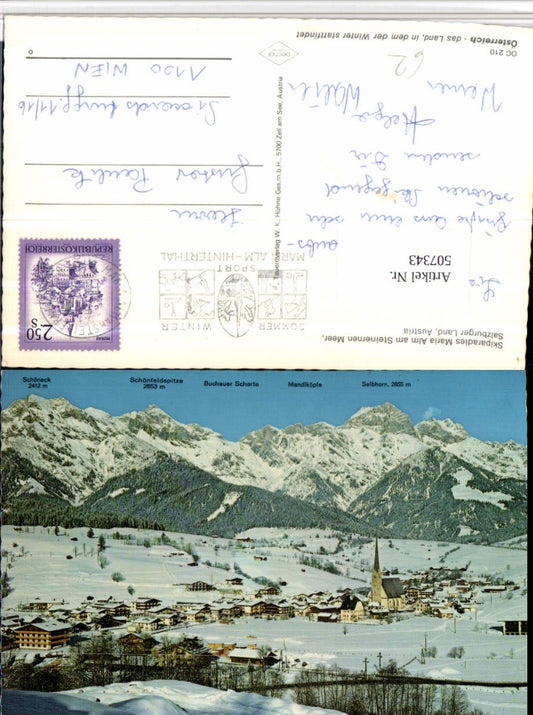 Skiparadies Maria Alm am Steinernen Meer,
Salzburger Land, Austria
SOMMER
WINTER
SPORT
MARIA ALM - HINTERTHAL
2.50
S
MURAU
REPUBLIK ÖSTERREICH
Artikel Nr.
507343
schönen Skigegend
senden Dir
Helga
Walter
Werner
62
Herrn
Gustav
1100 WIEN
Tauernverlag W. K. Hühne Ges.m.b.H., 5700 Zell am See, Austria
OC 210
Österreich - das Land, in dem der Winter stattfindet
Schöneck
2412 m
Schönfeldspitze
2653 m
Buchauer Scharte
Mandlköpfe
Selbhorn, 2655 m